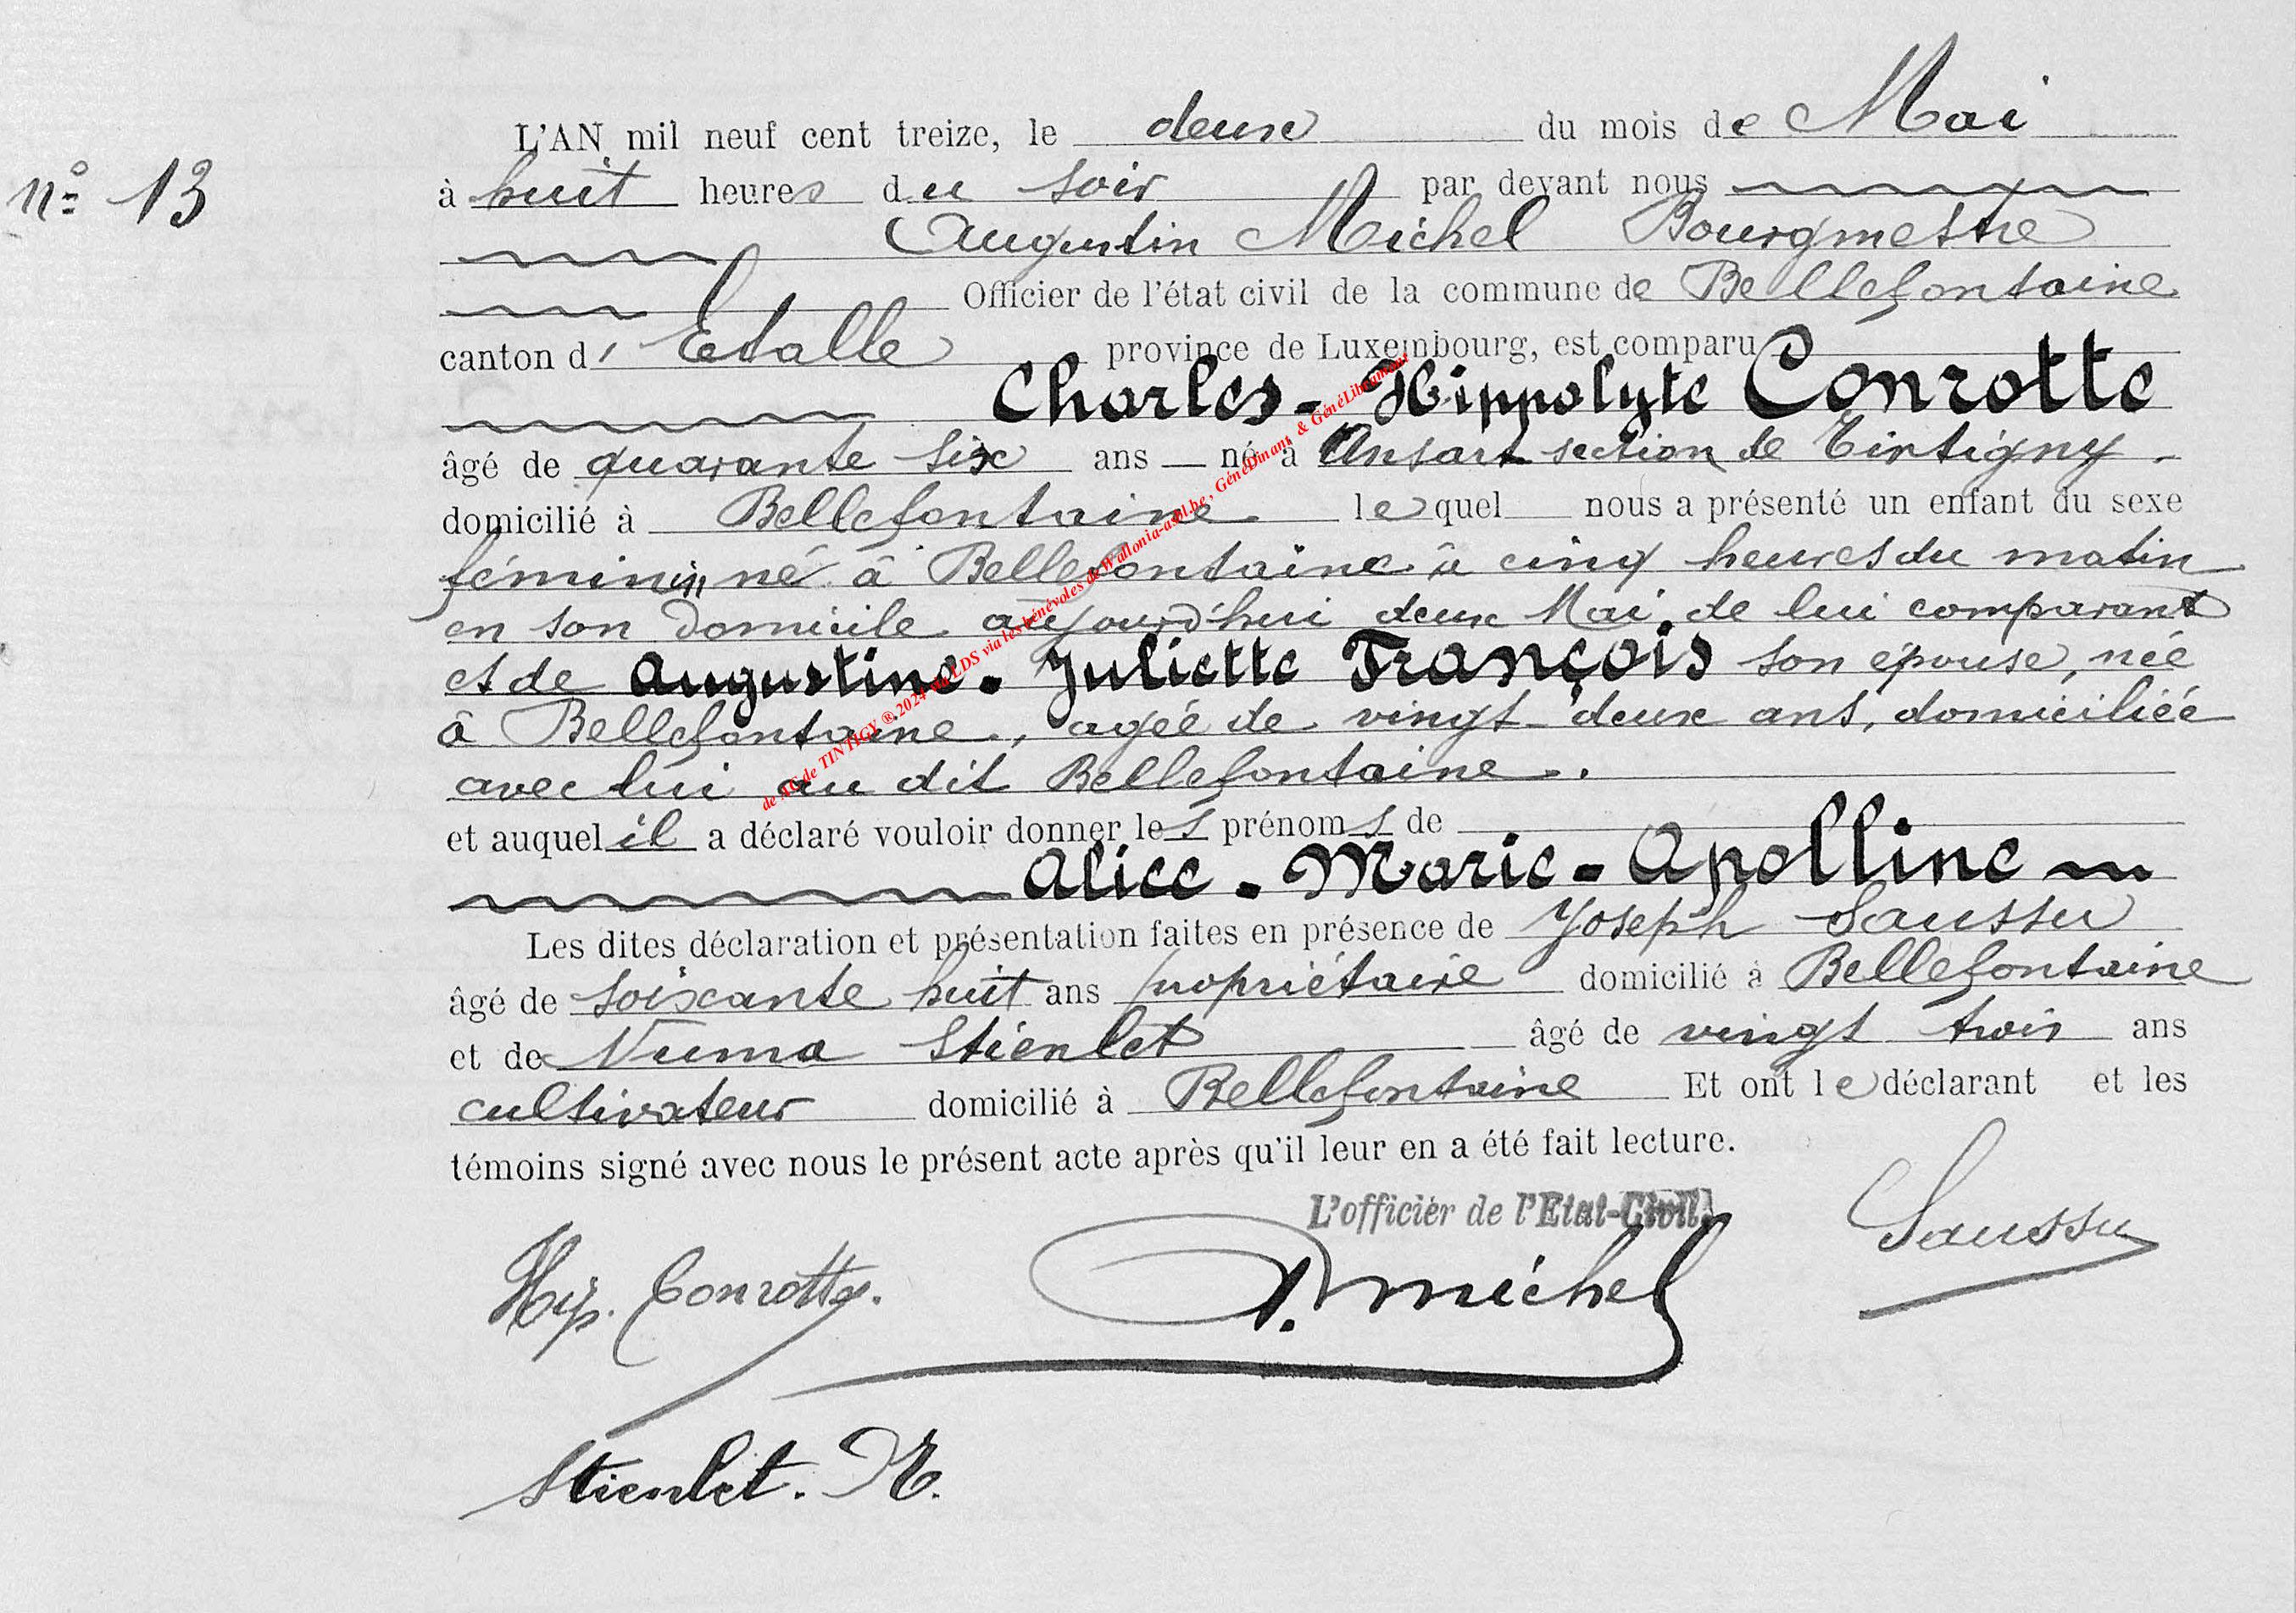 L'AN mil neuf cent treize, le deux du mois de Mai
n° 13
à huit heures du soir par devant nous
Augustin Michel Bourgmestre
Officier de l'état civil de la commune de Bellefontaine
canton d'Etalle province de Luxembourg, est comparu
Charles-Hippolyte Conrotte
âgé de quarante six ans né à Ansart section de Tintigny.
domicilié à Bellefontaine lequel nous a présenté un enfant du sexe
féminin né à Bellefontaine à cinq heures du matin
en son domicile aujourd'hui deux Mai, de lui comparant
et de Augustine-Juliette François son épouse, née
à Bellefontaine, agée de vingt-deux ans, domiciliée
avec lui au dit Bellefontaine.
et auquel il a déclaré vouloir donner les prénoms de
Alice-Marie-Apolline
Les dites déclaration et présentation faites en présence de Joseph Saussu
âgé de soixante huit ans propriétaire domicilié à Bellefontaine
et de Numa Stiénlet âgé de vingt trois ans
cultivateur domicilié à Bellefontaine Et ont le déclarant et les
témoins signé avec nous le présent acte après qu'il leur en a été fait lecture.
L'officier de l'Etat-Civil,
Hip. Conrotte. A. Michel Saussu
Stienlet. N.
de AC de TINTIGY ® 2024 via LDS via les bénévoles de Wallonia-asbl.be, GénéDinant & GénéLibramont